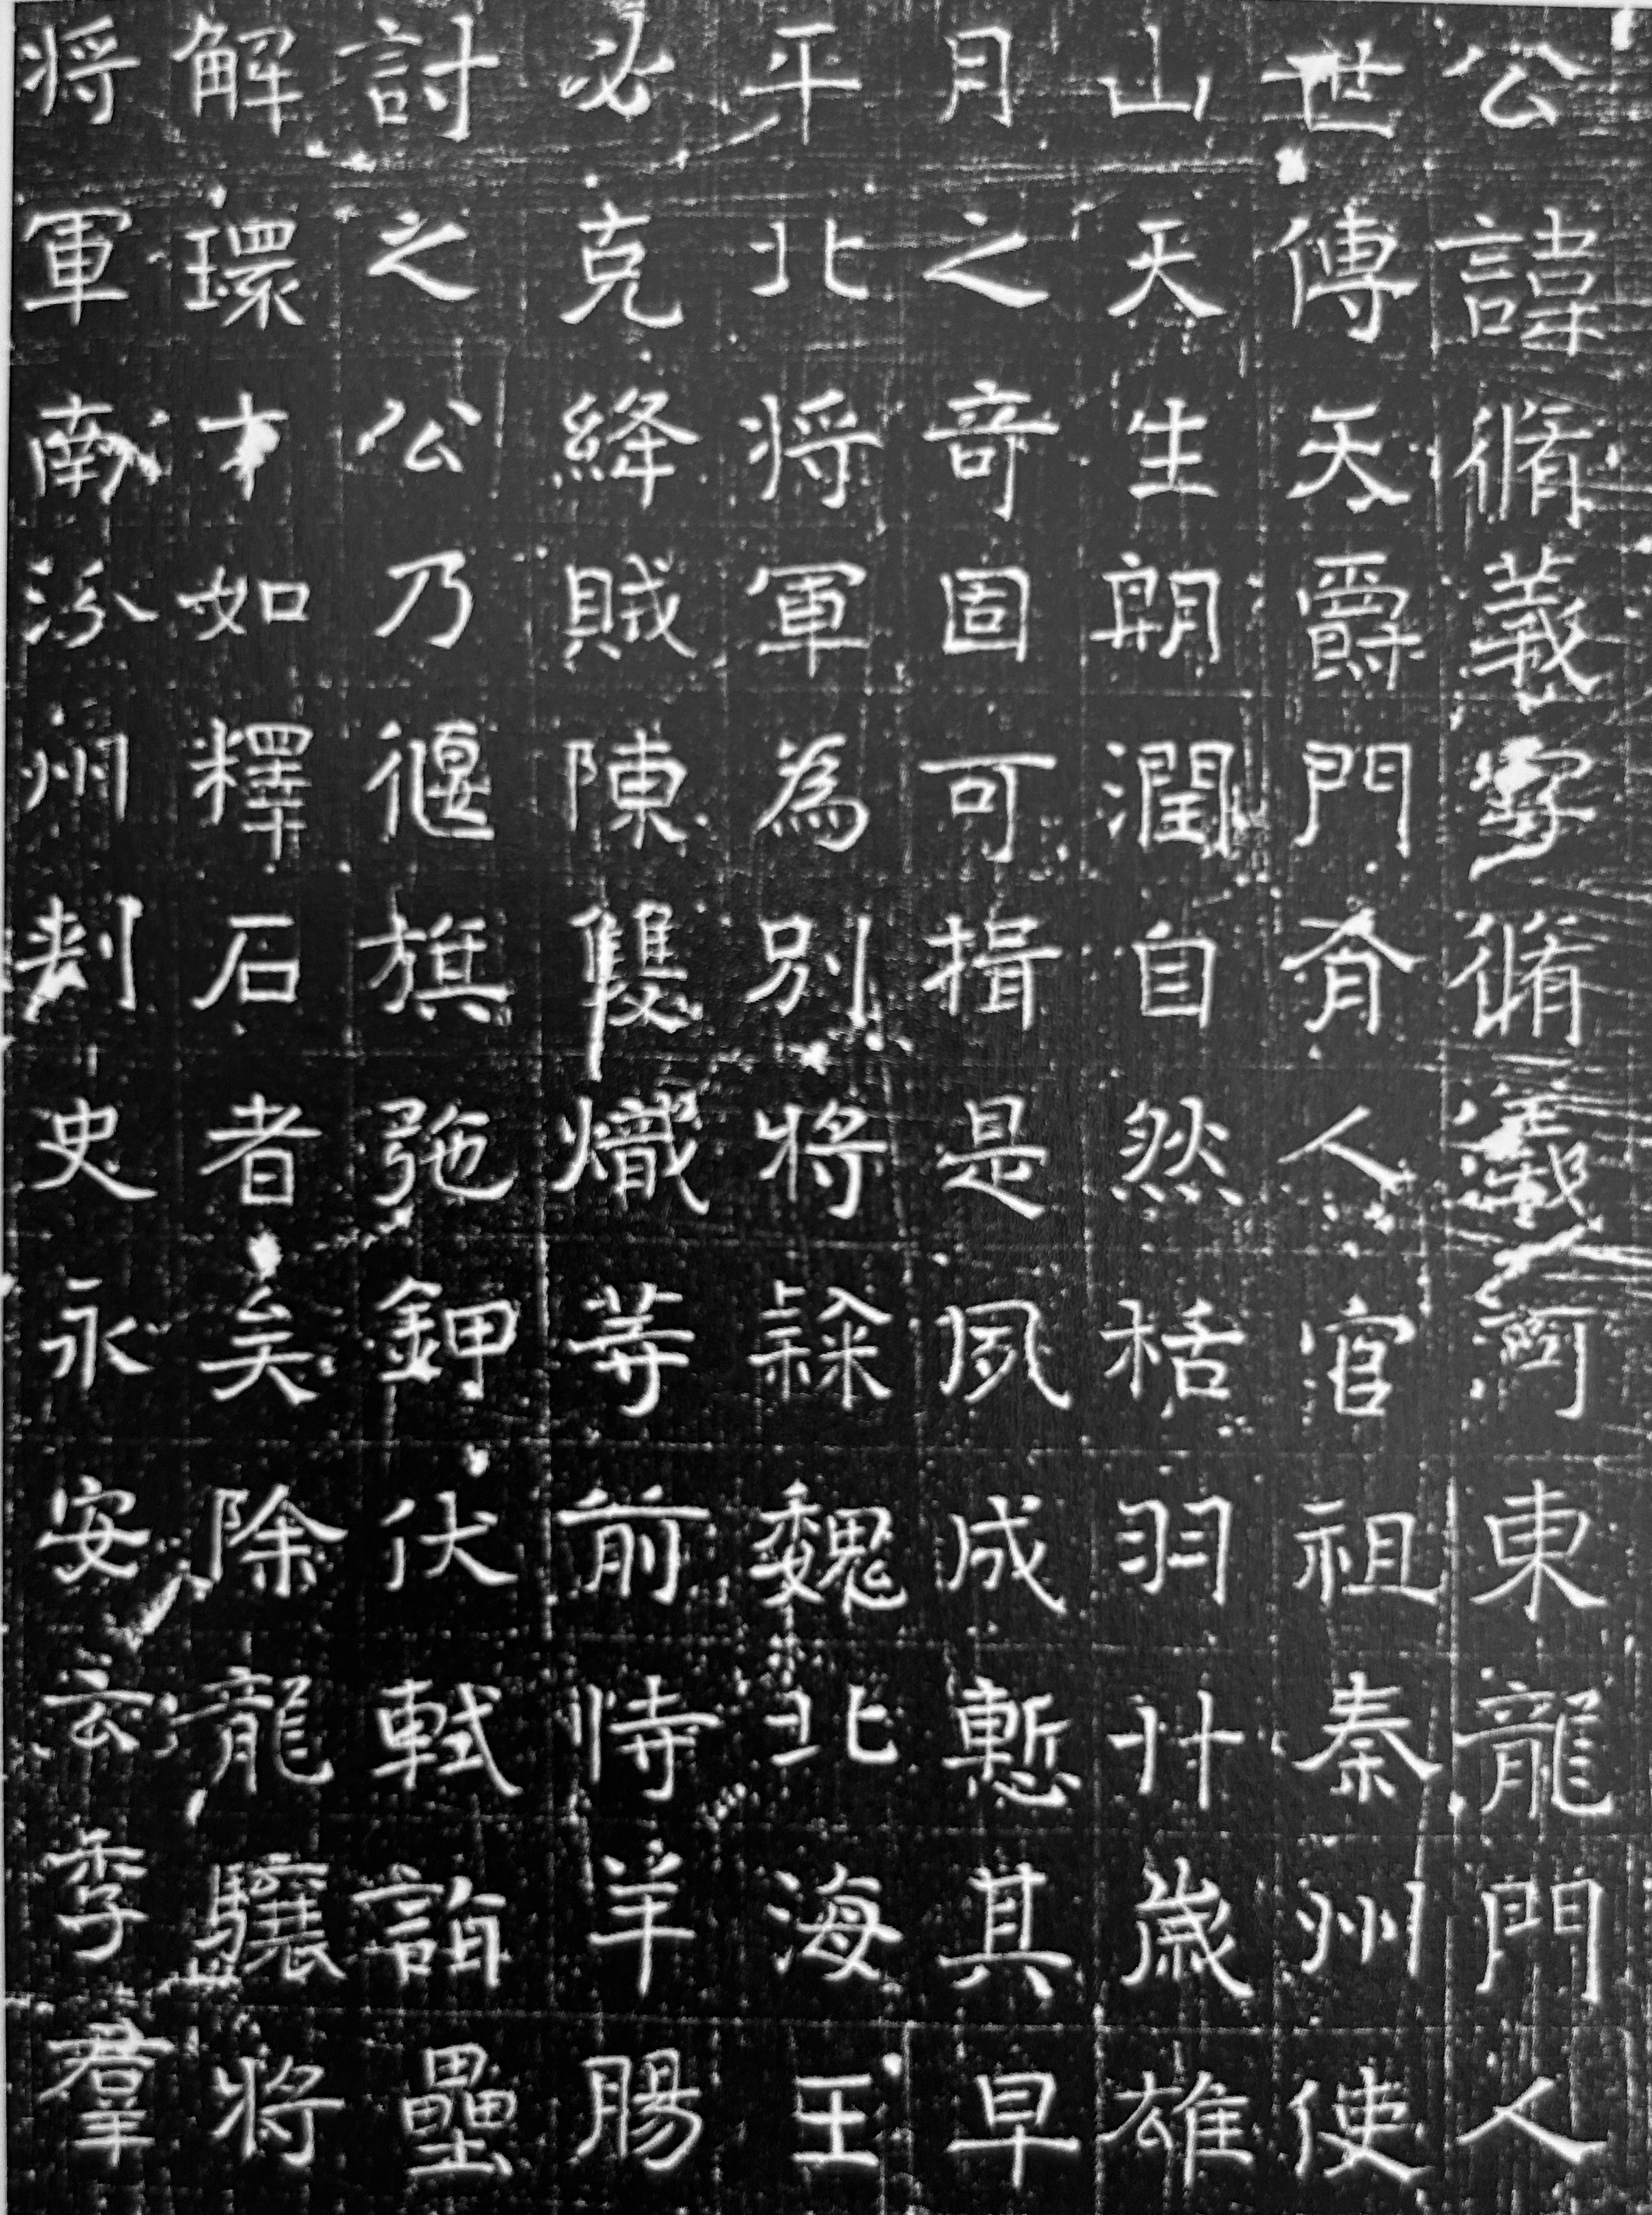 公諱脩義字脩義河東龍門人
世傳天爵門有人官祖秦州使
山天生朝潤自然栝羽廾歲雄
月之奇固可揖是夙成慙其早
平北将軍為別將隸魏北海王
必克絳賊陳雙熾等前恃羊腸
討之公乃偃旗弛鉀伏軾詣壘
解環才如釋石者矣除龍驤將
将軍南汾州刺史永安云季羣